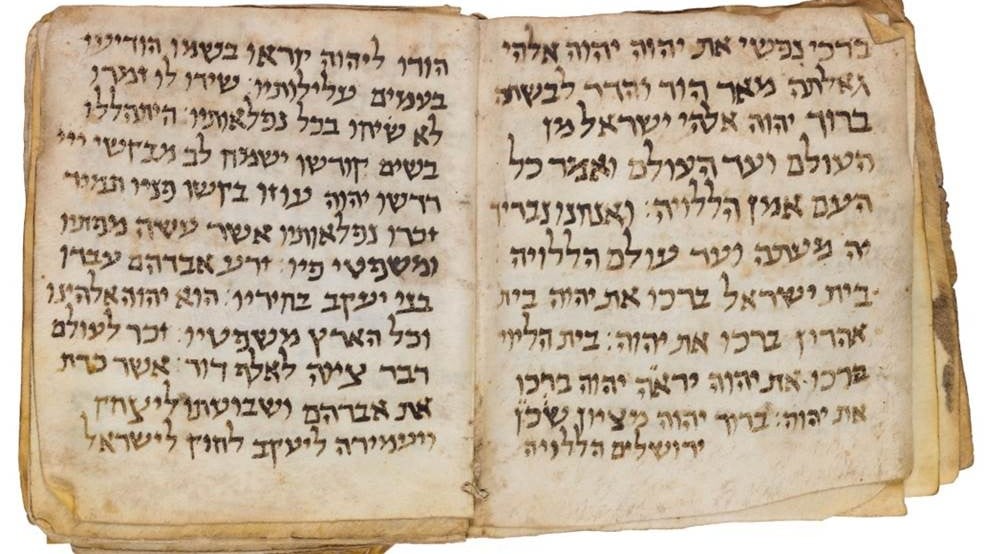 ברכי נפשי את יהוה יהוה אלהי
גאלתה מאד הוד והדר לבשתה
ברוך יהוה אלהי ישראל מן
העולם ועד העולם ואמר כל
העם אמן הללויה: ואנחנו נבריך
יה מעתה ועד עולם הללויה
בית ישראל ברכו את יהוה בית
אהרון ברכו את יהוה: בית הליוי
ברכו את יהוה יראי יהוה ברכו
את יהוה: ברוך יהוה מציון שכן
ירושלים הללויה
הודו ליהוה קראו בשמו הודיעו
בעמים עלילותיו: שירו לו זמרו
לא שיחו בכל נפלאותיו: היתהללו
בשים קודשו ישמח לב מבקשי ייי
דרשו יהוה עוזו בקשו פניו תמיד
זכרו נפלאותיו אשר עשה מפתיו
ומשפטי פיו: זרע אברהם עבדו
בני יעקב בחיריו: הוא יהוה אלהינו
וכל הארץ משפטיו: זכר לעולם
דבר ציוה לאלף דור: אשר כרת
את אברהם ושבועתו ליצחק
ויעמידה ליעקב לחוק לישראל